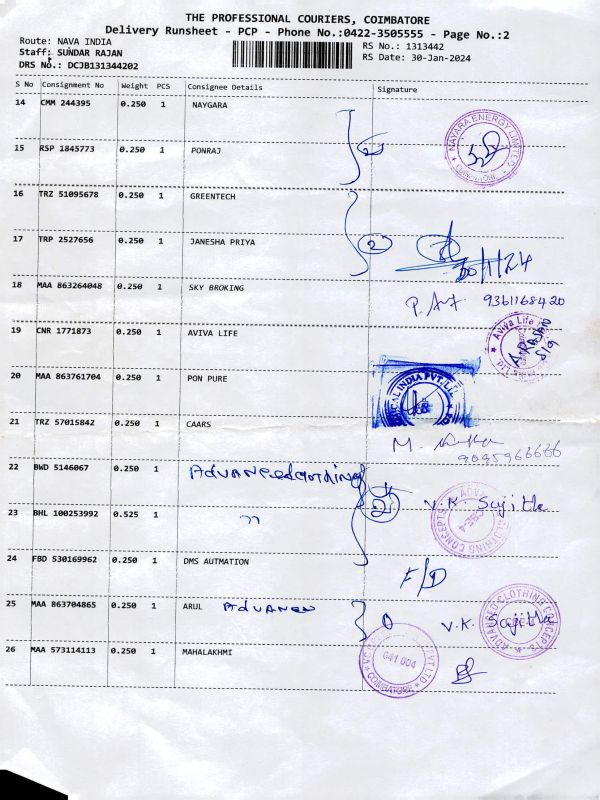 THE PROFESSIONAL COURIERS, COIMBATORE
Delivery Runsheet - PCP - Phone No.:0422-3505555 - Page No.:2
Route: NAVA INDIA RS No.: 1313442
Staff: SUNDAR RAJAN RS Date: 30-Jan-2024
DRS No.: DCJB131344202
S No Consignment No Weight PCS Consignee Details Signature
14 CMM 244395 0.250 1 NAYGARA
NAYARA ENERGY LIMITED
15 RSP 1845773 0.250 1 PONRAJ
16 TRZ 51095678 0.250 1 GREENTECH
17 TRP 2527656 0.250 1 JANESHA PRIYA 2
30/1/24
18 MAA 863264048 0.250 1 SKY BROKING 9361168420
19 CNR 1771873 0.250 1 AVIVA LIFE
Aviva Life
20 MAA 863761704 0.250 1 PON PURE
ICAL INDIA PVT. LTD
21 TRZ 57015842 0.250 1 CAARS M.
9095966666
22 BWD 5146067 0.250 1 Advanced clothing
23 BHL 100253992 0.525 1 " 2 V.K. Sajitha
CLOTHING CONCEPTS
24 FBD 530169962 0.250 1 DMS AUTMATION F/D
25 MAA 863704865 0.250 1 ARUL V.K. Sajitha
ADVANCED CLOTHING CONCEPTS
26 MAA 573114113 0.250 1 MAHALAKHMI
641 004
COIMBATORE